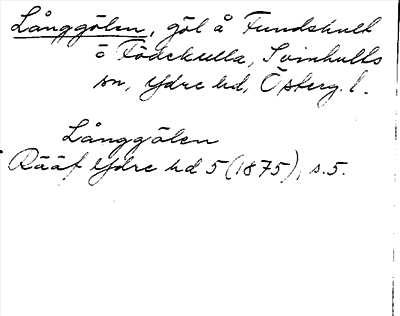 Långgölen, göl å Fundshult
o Födekulla, Svinhults
sn, Ydre hd, Österg. l.
Långgölen
Rääf Ydre hd 5 (1875), s. 5.